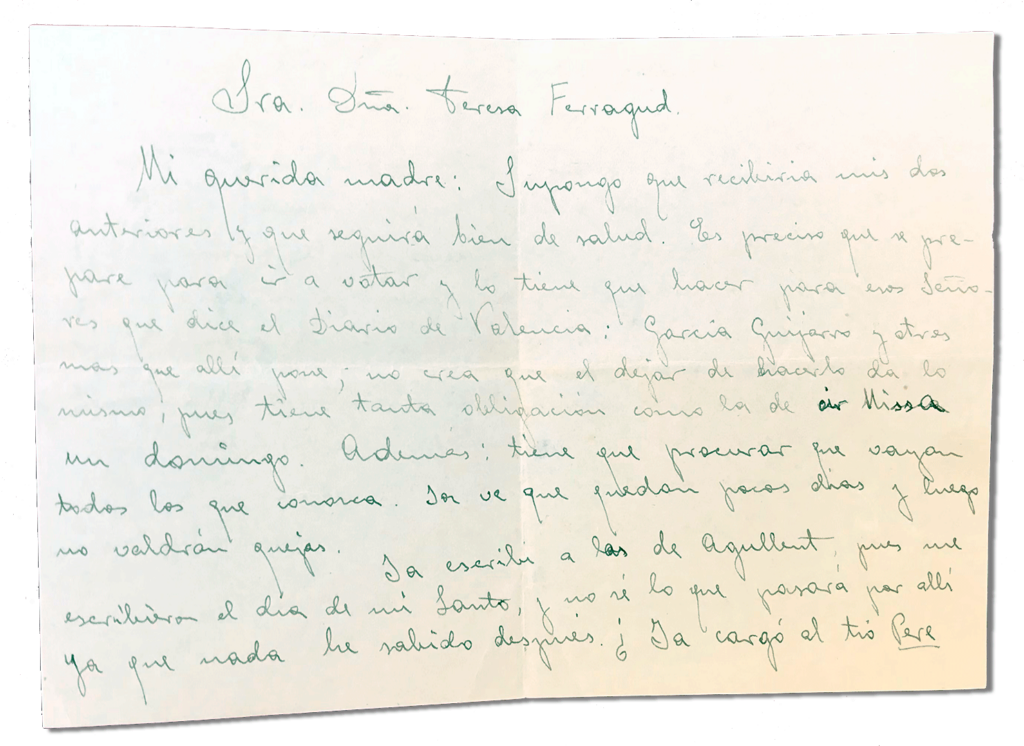 Sra. Dña. Teresa Ferragud.
Mi querida madre: Supongo que recibiria mis dos
anteriores y que seguirá bien de salud. Es preciso que se pre-
pare para ir a votar y lo tiene que hacer para esos Seño-
res que dice el Diario de Valencia: Garcia Guijarro y otros
mas que allí pone; no crea que el dejar de hacerlo da lo
mismo, pues tiene tanta obligación como la de oir Missa
un domingo. Además: tiene que procurar que vayan
todos los que conozca. Ya ve que quedan pocos dias y luego
no valdrán quejas.
Ya escribi a las de Agullent, pues me
escribieron el dia de mi Santo, y no sé lo que pasará por allí
ya que nada he sabido después. ¿Ya cargó el tio Pere